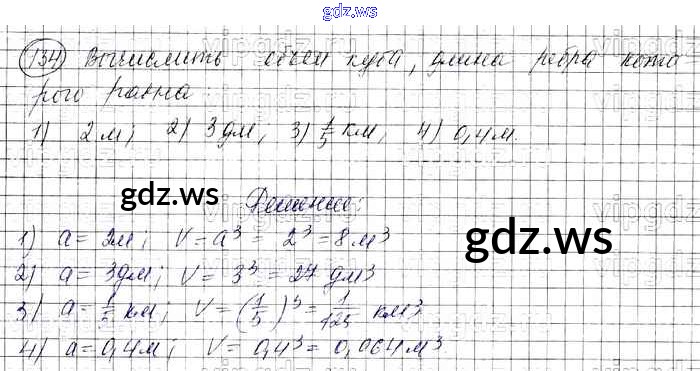 gdz.ws
134) Вычислить объем куба, длина ребра кото
рого равна:
1) 2 м; 2) 3 дм; 3) 1/5 км; 4) 0,4 м.
gdz.ws gdz.ws
Решение:
1) a = 2м; V = a³ = 2³ = 8 м³
2) a = 3дм; V = 3³ = 27 дм³
3) a = 1/5 км; V = (1/5)³ = 1/125 км³
4) a = 0,4м; V = 0,4³ = 0,064 м³
gdz.ws